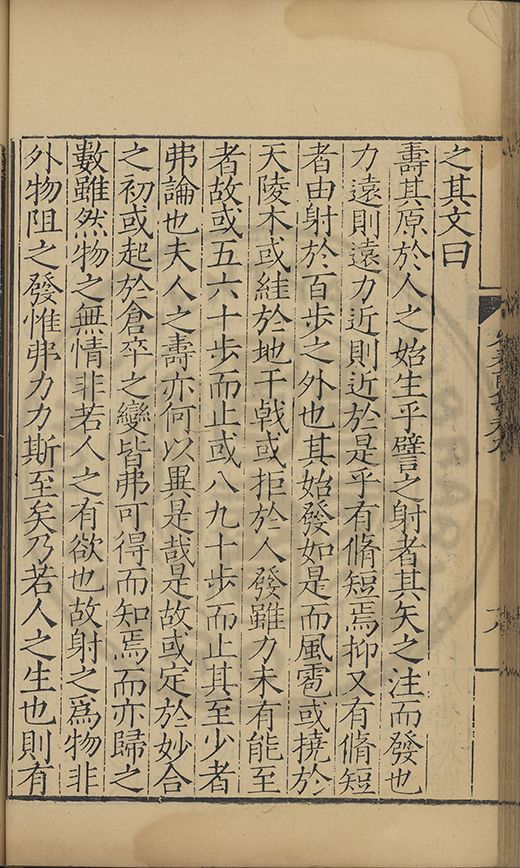 之其文曰
壽其原於人之始生乎譬之射者其矢之注而發也
力遠則遠力近則近於是乎有脩短焉抑又有脩短
者由射於百步之外也其始發如是而風雹或撓於
天陵木或絓於地干戟或拒於人發雖力未有能至
者故或五六十步而止或八九十步而止其至少者
弗論也夫人之壽亦何以異是哉是故或定於妙合
之初或起於倉卒之變皆弗可得而知焉而亦歸之
數雖然物之無情非若人之有欲也故射之爲物非
外物阻之發惟弗力力斯至矣乃若人之生也則有